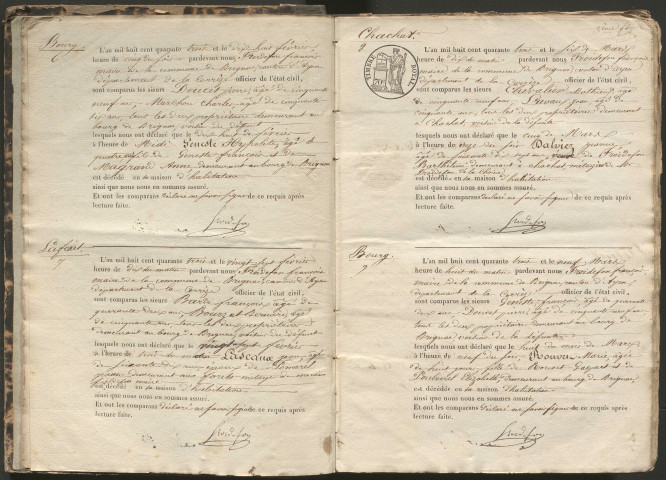 Bourg.
L'an mil huit cent quarante trois et le dix huit février
heure de cinq du soir pardevant nous Froidefon françois
maire de la commune de Brignac, canton d'Ayen
département de la Corrèze officier de l'état civil,
sont comparus les sieurs Doucet pierre, âgé de cinquante
neuf ans, Marchou Charles, âgé de cinquante
six ans, tous les deux propriétaires demeurant au
bourg de Brignac, voisins du défunt
lesquels nous ont déclaré que le dix huit de février
à l'heure de Midi Geneste Hypolite, âgé de
quatre fils de Geneste françois et de
Anne, demeurant au bourg de Brignac
est décédé en sa maison d'habitation
ainsi que nous nous en sommes assuré.
Et ont les comparans déclaré ne savoir signer de ce requis après
lecture faite.
Froidefon
L'an mil huit cent quarante trois et le vingt sept février
heure de dix du matin pardevant nous Froidefon françois
maire de la commune de Brignac, canton d'Ayen
département de la Corrèze officier de l'état civil,
sont comparus les sieurs françois, âgé de
quarante ans, Bernard, âgé
de cinquante ans, tous les deux propriétaires
demeurant au bourg de Brignac, voisins du défunt
lesquels nous ont déclaré que le vingt sept février
à l'heure de du matin
est décédé en sa maison d'habitation
ainsi que nous nous en sommes assuré.
Et ont les comparans déclaré ne savoir signer de ce requis après
lecture faite.
Froidefon
Chachat.
TIMBRE ROYAL
L'an mil huit cent quarante trois et le six de Mars
heure de dix du matin pardevant nous Froidefon françois
maire de la commune de Brignac, canton d'Ayen
département de la Corrèze officier de l'état civil,
sont comparus les sieurs Chevalier Mathieu, âgé
de cinquante neuf ans, jean, âgé de
cinquante ans, tous les deux propriétaires demeurant
à Chachat, voisins de la défunte
lesquels nous ont déclaré que le cinq de Mars
à l'heure de onze du soir
âgée de soixante sept ans, veuve de Froidefon
Barthélemy demeurant à Chachat,
est décédé en sa maison d'habitation
ainsi que nous nous en sommes assuré.
Et ont les comparans déclaré ne savoir signer de ce requis après
lecture faite.
Froidefon
Bourg.
L'an mil huit cent quarante trois et le neuf Mars
heure de huit du matin pardevant nous Froidefon françois,
maire de la commune de Brignac, canton d'Ayen,
département de la Corrèze officier de l'état civil,
sont comparus les sieurs Geneste françois, âgé de quarante
ans, Doucet pierre, âgé de cinquante neuf ans
tous les deux propriétaires demeurant au bourg de
Brignac, voisins de la défunte
lesquels nous ont déclaré que le huit du mois de Mars
à l'heure de neuf du soir Marie, âgée
de huit jours, fille de et de
demeurant au bourg de Brignac
est décédé en sa maison d'habitation
ainsi que nous nous en sommes assuré.
Et ont les comparans déclaré ne savoir signer de ce requis après
lecture faite.
Froidefon